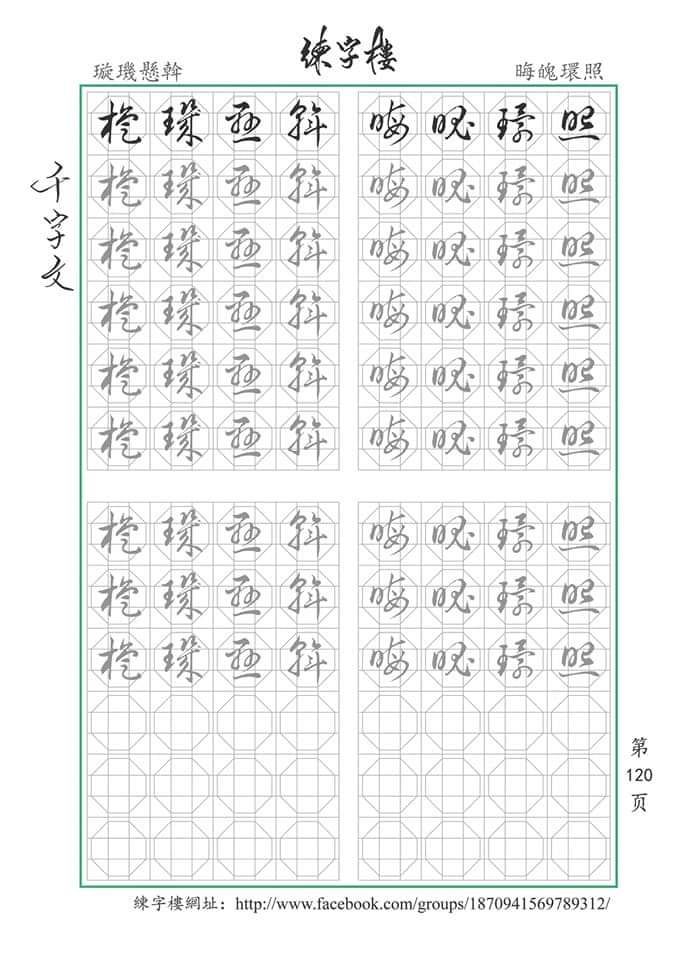 練字樓
璇璣懸斡 晦魄環照
千字文
璇璣懸斡 晦魄環照
璇璣懸斡 晦魄環照
璇璣懸斡 晦魄環照
璇璣懸斡 晦魄環照
璇璣懸斡 晦魄環照
璇璣懸斡 晦魄環照
璇璣懸斡 晦魄環照
璇璣懸斡 晦魄環照
璇璣懸斡 晦魄環照
第
120
页
練字樓網址：http://www.facebook.com/groups/1870941569789312/